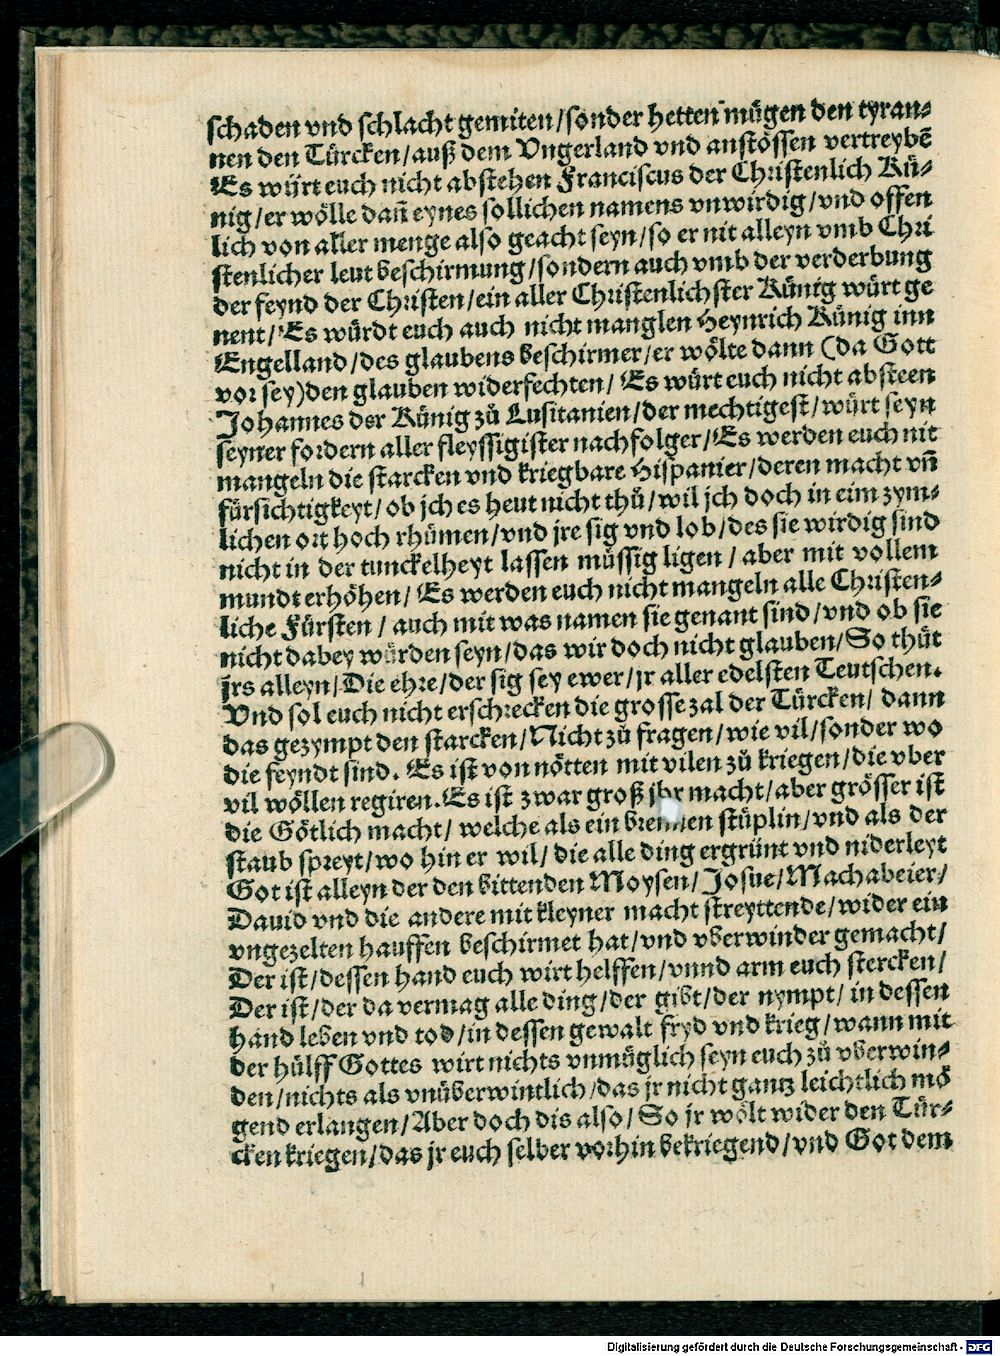 schaden vnd schlacht gemiten/sonder hetten mügen den tyran⸗
nen den Türcken/auß dem Vngerland vnd anstössen vertreybē
Es würt euch nicht abstehen Franciscus der Christenlich Kü⸗
nig/er wölle dañ eynes sollichen namens vnwirdig/vnd offen
lich von aller menge also geacht seyn/so er nit alleyn vmb Chri
stenlicher leut beschirmung/sondern auch vmb der verderbung
der feynd der Christen/ein aller Christenlichster Künig würt ge
nent/Es würdt euch auch nicht manglen Heynrich Künig inn
Engelland/des glaubens beschirmer/er wölte dann (da Gott
vor sey)den glauben widerfechten/ Es würt euch nicht absteen
Johannes der Künig zů Lusitanien/der mechtigest/würt seyn
seyner fordern aller fleyssigister nachfolger/Es werden euch nit
mangeln die starcken vnd kriegbare Hispanier/deren macht vñ
fürsichtigkeyt/ob jch es heut nicht thů/wil jch doch in eim zym⸗
lichen ort hoch rhümen/vnd jre sig vnd lob/des sie wirdig sind
nicht in der tunckelheyt lassen müssig ligen/aber mit vollem
mundt erhöhen/ Es werden euch nicht mangeln alle Christen⸗
liche Fürsten/auch mit was namen sie genant sind/vnd ob sie
nicht dabey würden seyn/das wir doch nicht glauben/So thůt
jrs alleyn/Die ehre/der sig sey ewer/jr aller edelsten Teutschen.
Vnd sol euch nicht erschrecken die grosse zal der Türcken/ dann
das gezympt den starcken/Nicht zů fragen/wie vil/sonder wo
die feyndt sind. Es ist von nötten mit vilen zů kriegen/die vber
vil wöllen regiren.Es ist zwar groß jhr macht/aber grösser ist
die Götlich macht/ welche als ein brennen stüplin/vnd als der
staub spreyt/wo hin er wil/die alle ding ergrünt vnd niderleyt
Got ist alleyn der den bittenden Moysen/Josue/Machabeier/
Dauid vnd die andere mit kleyner macht streyttende/wider ein
vngezelten hauffen beschirmet hat/vnd vberwinder gemacht/
Der ist/dessen hand euch wirt helffen/vnnd arm euch stercken/
Der ist/der da vermag alle ding/der gibt/der nympt/in dessen
hand leben vnd tod/in dessen gewalt fryd vnd krieg/wann mit
der hülff Gottes wirt nichts vnmüglich seyn euch zů vberwin⸗
den/nichts als vnüberwintlich/das jr nicht gantz leichtlich mö
gend erlangen/Aber doch dis also/ So jr wölt wider den Tür⸗
cken kriegen/das jr euch selber vorhin bekriegend/vnd Got dem
Digitalisierung gefördert durch die Deutsche Forschungsgemeinschaft - DFG